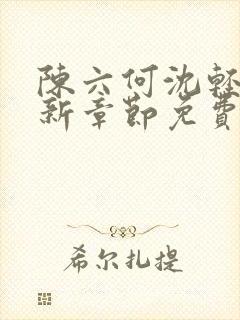 陳六何沈輕
新章節免費
希尔扎提